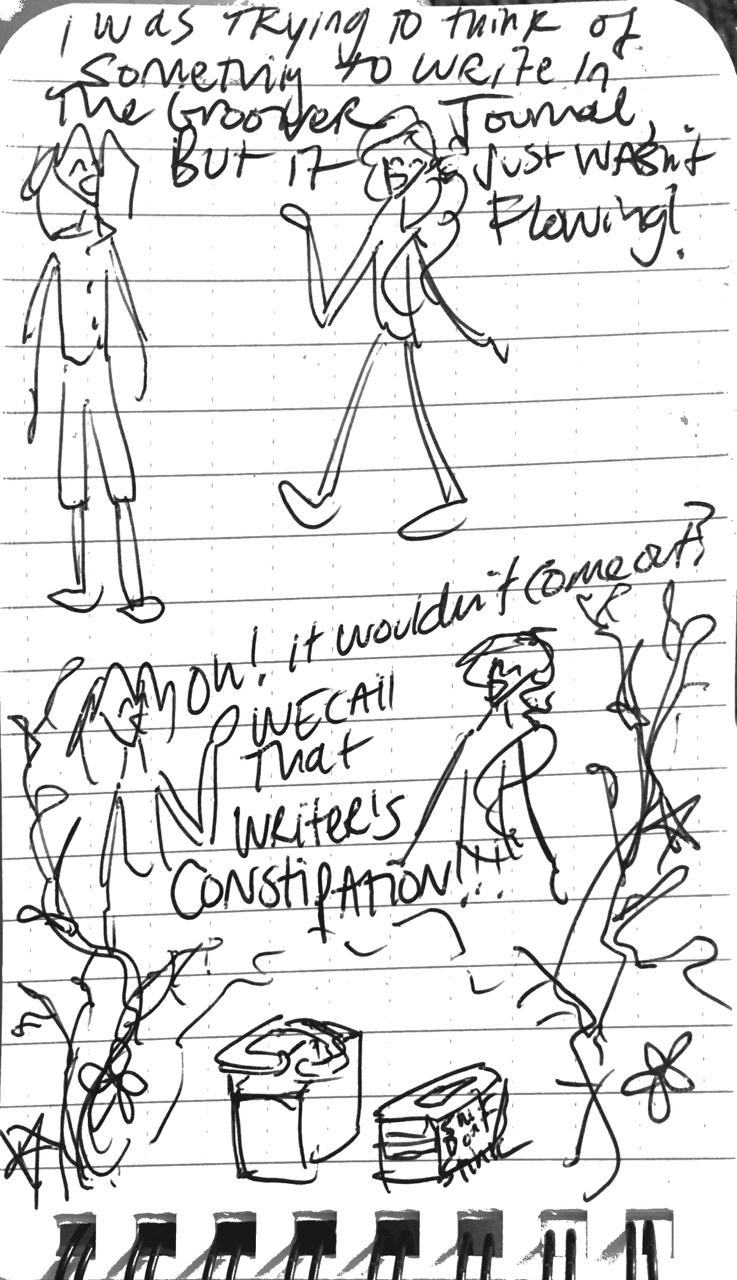 i was TRYing to think of
Something to write in
The Groover Journal,
But it just wasn't
Flowing!
OH! it wouldn't come out?
WE CAll
That
WRiter's
CONStipAtion!!!
Shit
Don't
Stink